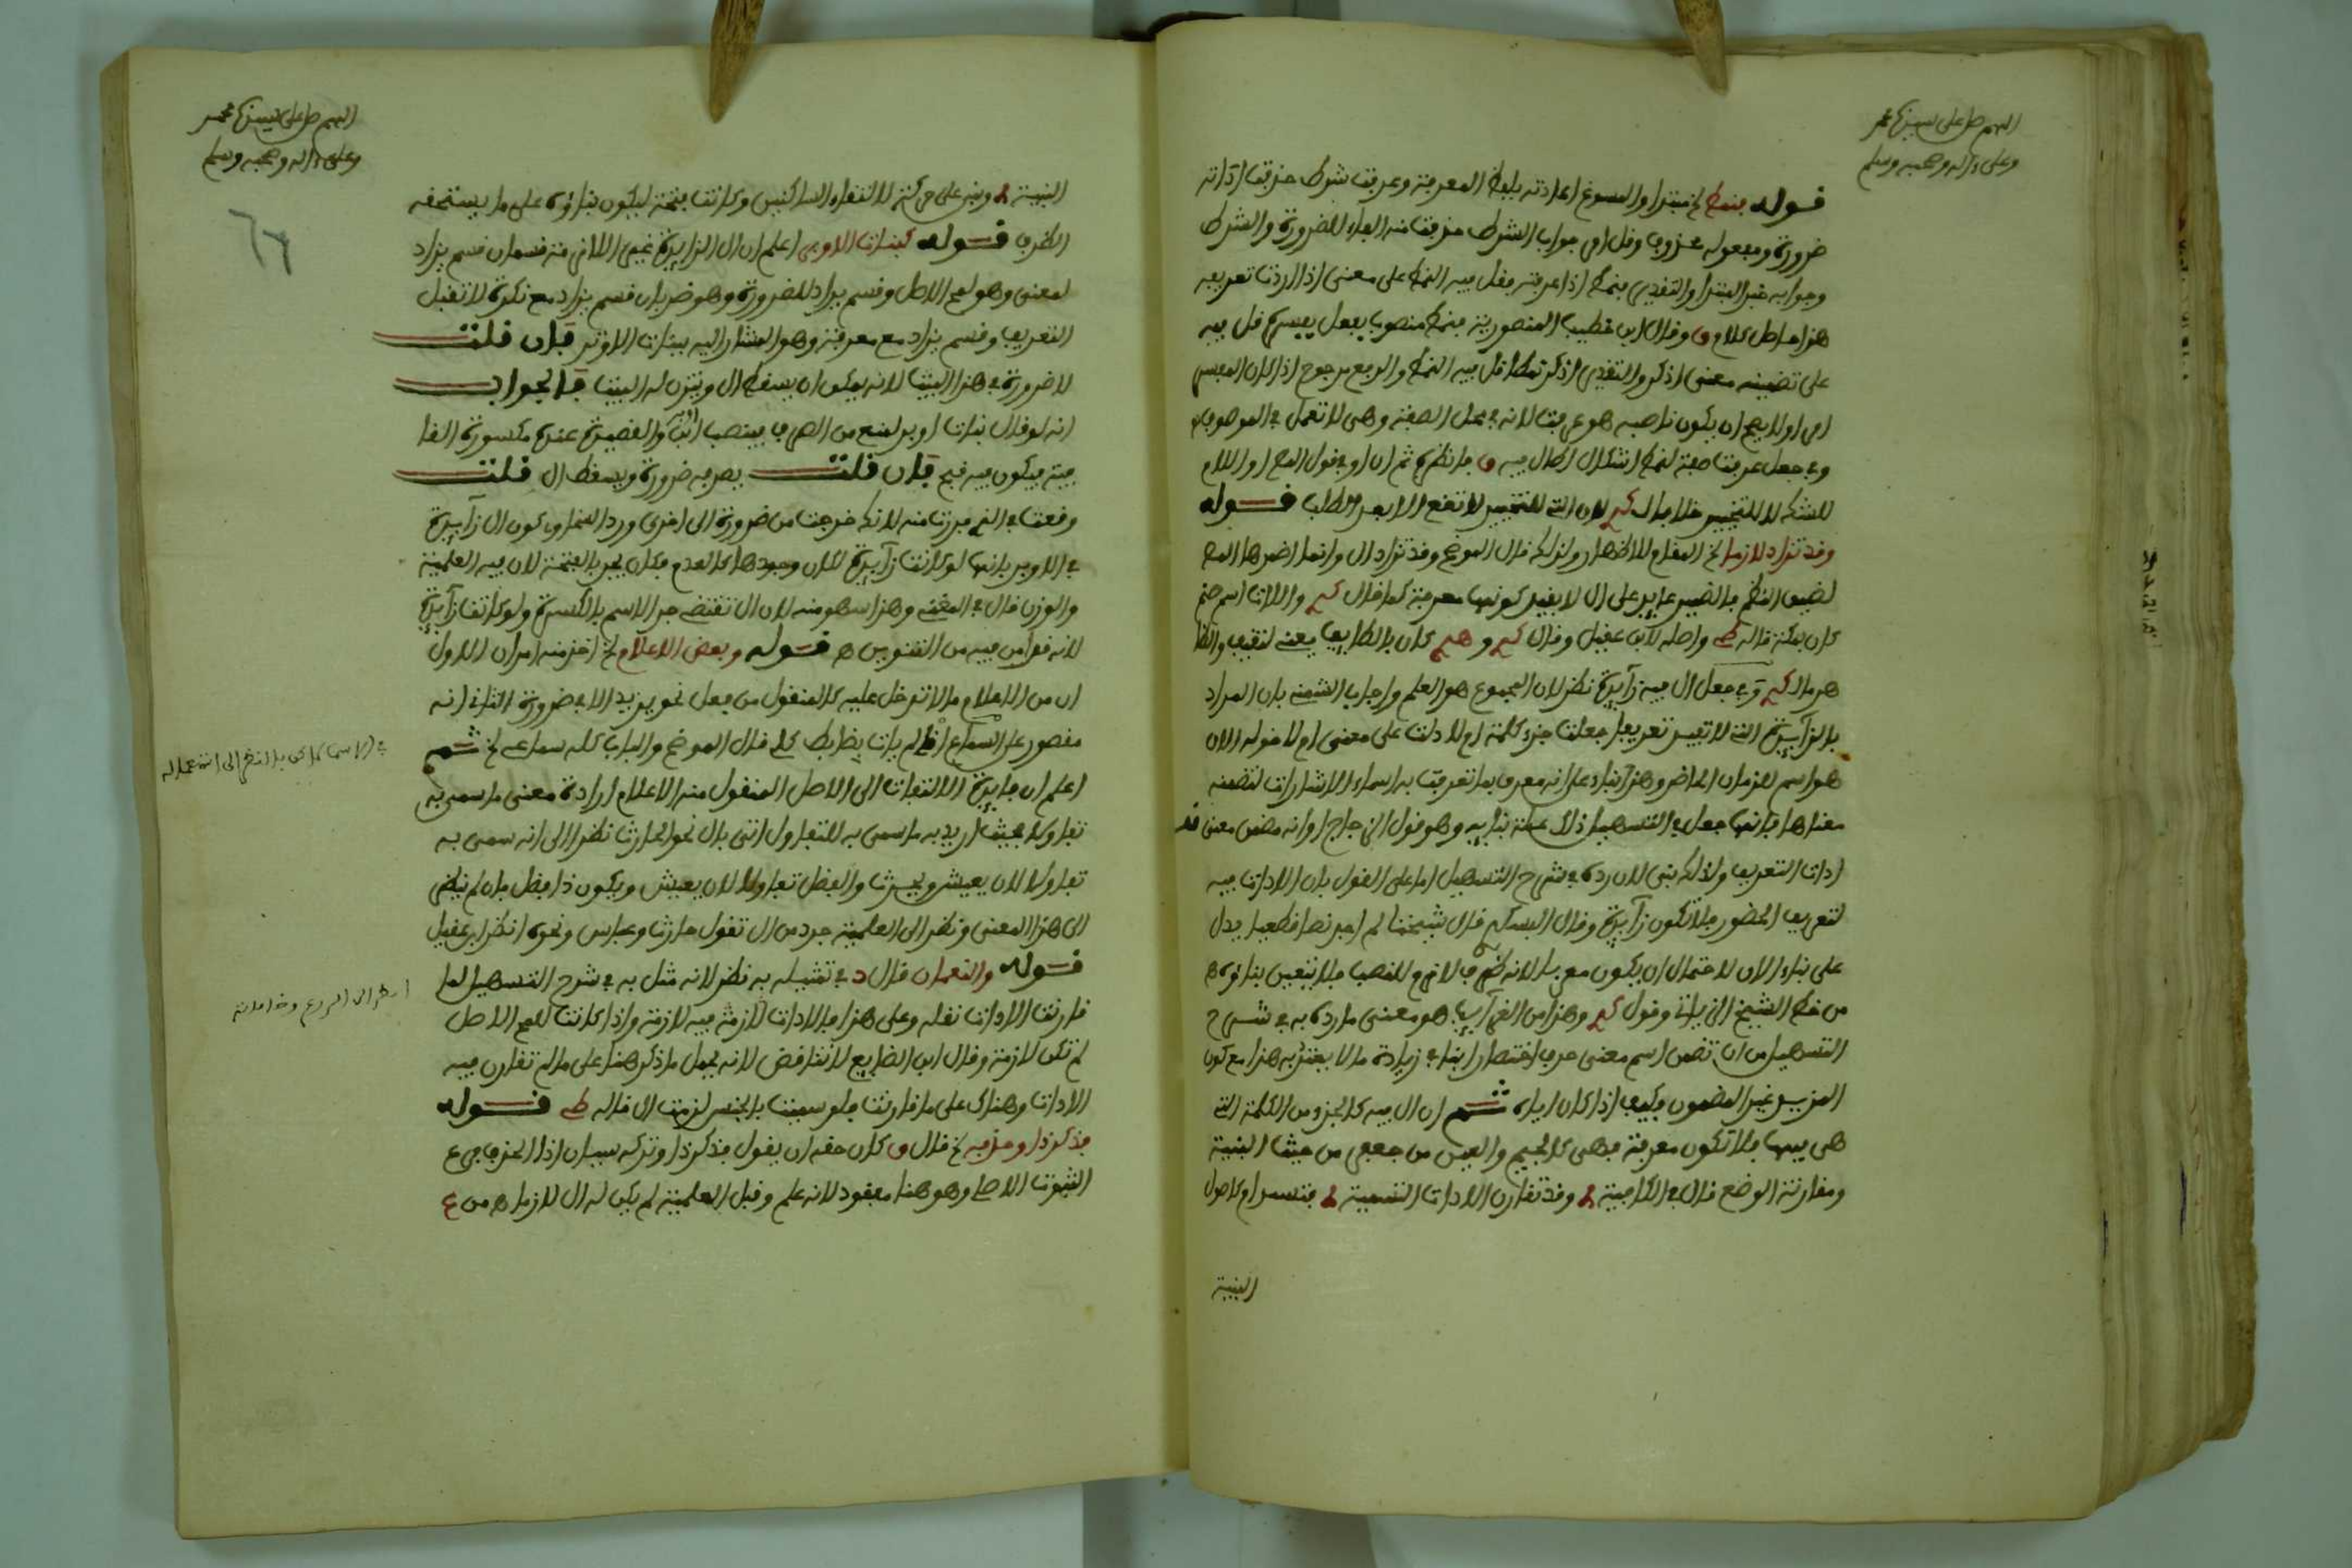 اللهم صل على سيدنا محمد
وعلى ءاله وصحبه وسلم
قوله فنمط الخ مبتدا والمسوغ اعادته بلفظ المعرفة وعرفت شرط حذفت اداته
ضرورة ومفعوله محذوف وقل اي جواب الشرط حذفت منه الفاء للضرورة والشرط
وجوابه خبر المبتدا والتقدير فنمط اذا عرفته فقل فيه النمط على معنى اذا اردت تعريفه
هذا حاصل كلام وقال ابن خطيب المنصورية فنمط منصوب بفعل يفسره قل فيه
على تضمينه معنى اذكر والتقدير اذكر نمطا قل فيه النمط والرفع مرجوح اذا كان المفسر
امرا ولا يصح ان يكون ناصبه هو عرفت لانه في محل الصفة وهي لا تعمل في الموصوف
وفي جعل عرفت صفة لنمط اشكال اطال فيه فانظره ثم ان او في قول المص او اللام
للشك لا للتخيير خلافا لـ لان التي للتخيير لا تقع الا بعد الطلب قوله
وقد تزاد لازما الخ المقام للاظهار ولذلك قال الموضح وقد تزاد ال وانما اضمرها المص
لضيق النظم فالضمير عايد على ال لا بقيد كونها معرفة كما قال واللات اسم صنم
كان بمكة قاله واصله لابن عقيل وقال كان بالطايف يعني لثقيف والظا
هر ما لـ وفي جعل ال فيه زايدة نظر لان المجموع هو العلم واجاب الشمني بان المراد
بالزايدة التي لا تفيد تعريفا جعلت جزء كلمة ام لا دلت على معنى ام لا قوله الان
هو اسم للزمان الحاضر وهذا بناء على انه معرف بما تعرفت به اسماء الاشارات لتضمنه
معناها فانه جعل في التسهيل ذلك علة بنايه وهو قول الزجاج او انه مضمن معنى
ادات التعريف ولذلك بني لان رده في شرح التسهيل اما على القول بان الادات فيه
لتعريف الحضور فلا تكون زايدة وقال البسكري قال شيخنا لم اجد نصا قطعيا يدل
على بناء الان لاحتمال ان يكون معربا لانه ظرف لازم للنصب فلا يتعين بناؤه
من خط الشيخ الزيات وقول وهذا من الغرايب هو معنى ما رده به في شرح
التسهيل من ان تضمن اسم معنى حرف اختصارا ينافي زيادة ما لا يعتد به هذا مع كون
المزيد غير المضمون فكيف اذا كان اياه ثم ان ال فيه كالجزء من الكلمة التي
هي فيها فلا تكون معرفة فهي كالجيم والعين من جعفر من حيث البنية
ومقارنة الوضع قال في الكافية وقد تقارن الادات التسمية فتستدام كاصول
البنية
اللهم صل على سيدنا محمد
وعلى ءاله وصحبه وسلم
٦٦
البنية وبني على حركة لالتقاء الساكنين وكانت فتحة ليكون بناؤه على ما يستحقه
الظرف قوله كبنات الاوبر اعلم ان ال الزايدة غير اللازمة قسمان قسم يزاد
لمعنى وهو لمح الاصل وقسم يزاد للضرورة وهو ضربان قسم يزاد مع نكرة لا تقبل
التعريف وقسم يزاد مع معرفة وهو المشار اليه ببنات الاوبر فان قلت
لا ضرورة في هذا البيت لانه يمكن ان يسقط ال ويتزن له البيت فالجواب
انه لو قال بنات اوبر لمنع من الصرف فينصب والقصيدة عنده مكسورة القا
فية فيكون فيه قبح فان قلت يصرفه ضرورة ويسقط ال قلت
وقعت في الذي فررت منه لانك خرجت من ضرورة الى اخرى ورد السخاوي كون ال زايدة
في الاوبر بانها لو كانت زايدة لكان وجودها كالعدم فكان يجر بالفتحة لان فيه العلمية
والوزن قال في المغني وهذا سهو منه لان ال تقتضي جر الاسم بالكسرة ولو كانت زايدة
لانه قد امن فيه من التنوين قوله وبعض الاعلام الخ اخذ منه امران الاول
ان من الاعلام ما لا تدخل عليه كالمنقول من فعل نحو يزيد الا في ضرورة الثاني انه
مقصور على السماع اذ لم يات بضابط كلي قال الموضح والباب كله سماعي الخ ثم
اعلم ان فايدة الالتفات الى الاصل المنقول منه الاعلام ارادة معنى ما سمي به
تفاولا فحيث اريد به ما سمي به للتفاول اتى بال نحو الحارث نظرا الى انه سمي به
تفاولا لان يعيش ويحرث والفضل تفاولا لان يعيش ويكون ذا فضل فان لم ينظر
الى هذا المعنى ونظر الى العلمية جرد من ال تقول حارث وعباس ونحوه انظر ابن عقيل
قوله والنعمان قال د في تمثيله به نظر لانه مثل به في شرح التسهيل لما
قارنت الادات نقله وعلى هذا فالادات لازمة فيه لازمة واذا كانت للمح الاصل
لم تكن لازمة وقال ابن الضايع لا تناقض لانه يحمل ما ذكر هنا على ما لم تقارن فيه
الادات وهناك على ما قارنت فلو سميت بالجنس لزمت ال قاله قوله
فذكر ذا وحذفه الخ قال كان حقه ان يقول فذكر ذا وتركه سيان اذ الحذف فرع
الثبوت الاصلي وهو هنا مفقود لانه علم وقبل العلمية لم يكن له ال لازما من